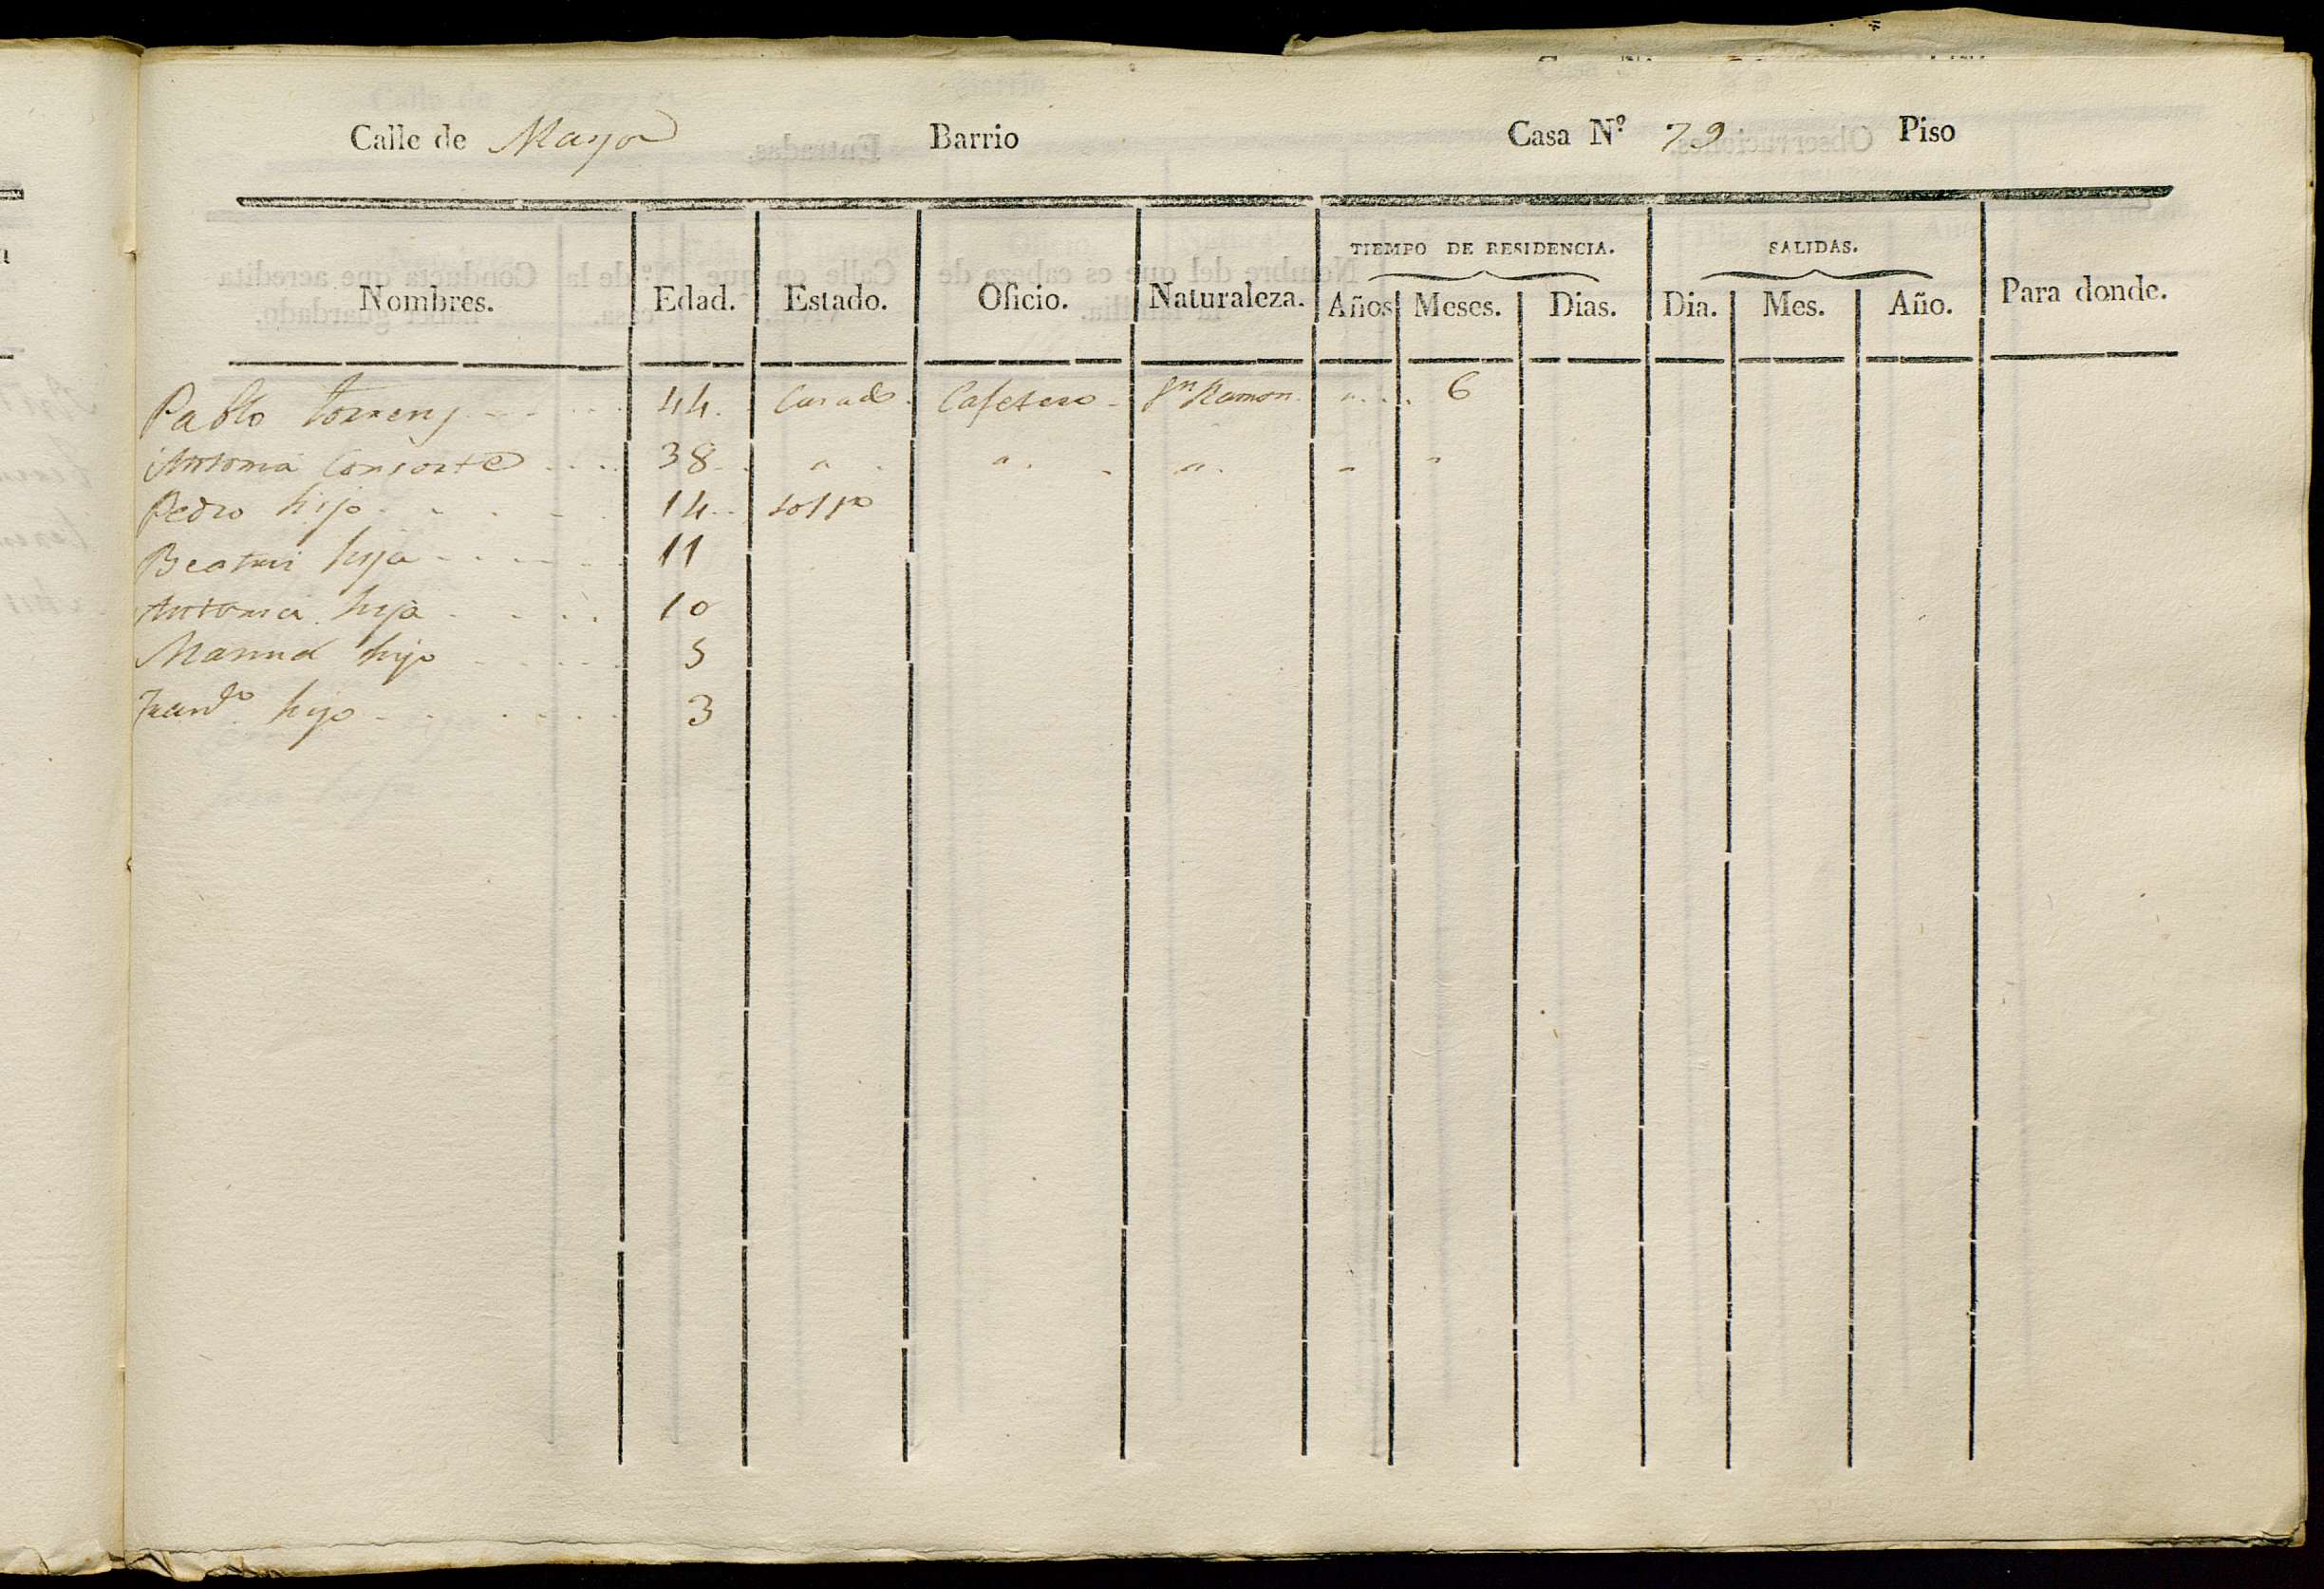 Calle de Mayor Barrio Casa N.º 79 Piso
TIEMPO DE RESIDENCIA. SALIDAS.
Nombres. Edad. Estado. Oficio. Naturaleza. Años Meses. Dias. Dia. Mes. Año. Para donde.
Pablo Torrens 44. Casado. Cafetero Sn Ramon. " 6
Antonia Consorte 38 " " " " "
Pedro hijo 14
Beatris hija 11
Antonia hija 10
Manuel hijo 5
hijo 3